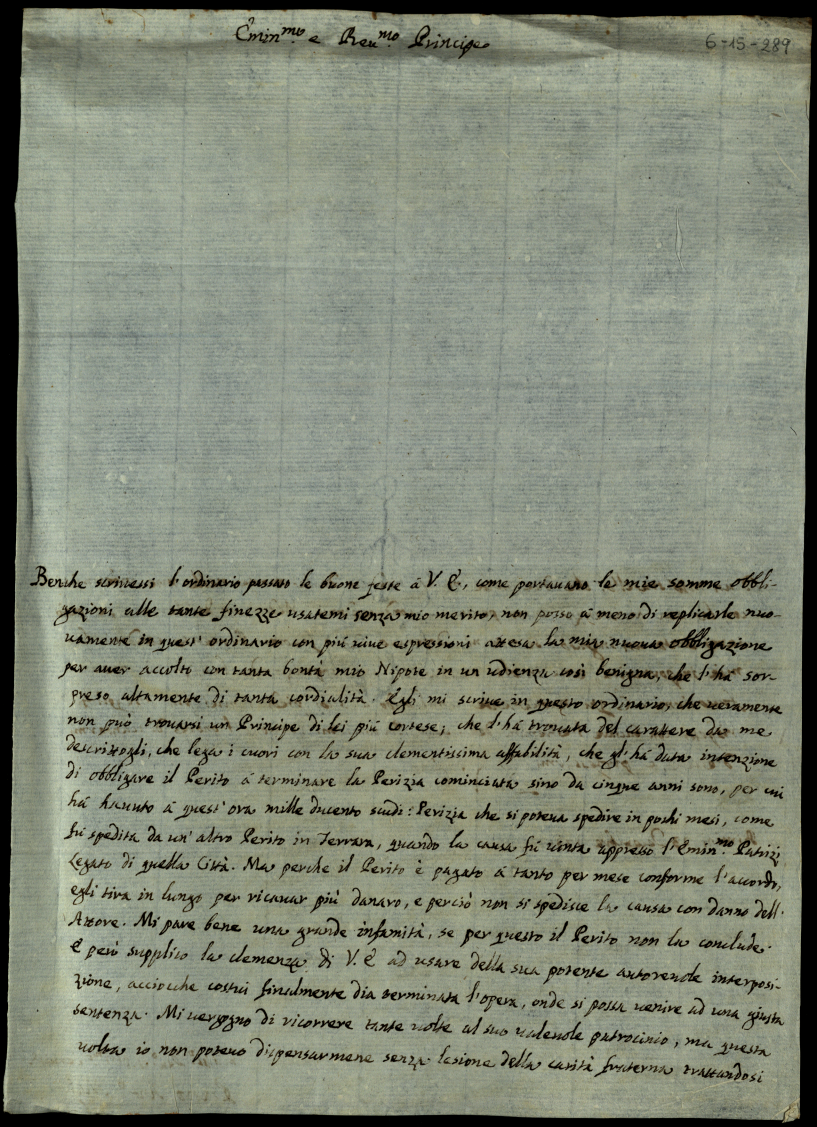 Emin.mo e Reu.mo Principe
6-15-289
Benche scriuessi l'ordinario passato le buone feste á V. E., come portauano le mie somme obbli-
gazioni alle tante finezze usatemi senza mio merito, non posso á meno di replicarle nuo-
uamente in quest'ordinario con piú uiue espressioni attesa la mia nuoua obbligazione
per auer accolto con tanta bontà mio Nipote in un udienza cosí benigna, che l'há sor-
preso altamente di tanta cordialità. Egli mi scriue in questo ordinario, che ueramente
non può trouarsi un Principe di lei piú cortese; che l'há trouata del carattere da me
descrittogli, che lega i cuori con la sua clementissima affabilità, che gl'há data intenzione
di obbligare il Perito á terminare la Perizia cominciata sino da cinque anni sono, per cui
há hauuto á quest'ora mille ducento scudi: Perizia che si poteua spedire in pochi mesi, come
fú spedita da un'altro Perito in Ferrara, quando la causa fú uinta appresso l'Emin.mo Patrizj
Legato di quella Città. Ma perche il Perito è pagato á tanto per mese conforme l'accordo,
egli tira in lungo per ricauar piú danaro, e perciò non si spedisce la causa con danno dell'
Attore. Mi pare bene una grande infamità, se per questo il Perito non la conclude.
E però supplico la clemenza di V. E. ad usare della sua potente autoreuole interposi-
zione, acciocche costui finalmente dia terminata l'opera, onde si possa uenire ad una giusta
sentenza. Mi uergogno di ricorrere tante uolte al suo ualeuole patrocinio, ma questa
uolta io non poteuo dispensarmene senza lesione della carità fraterna trattandosi